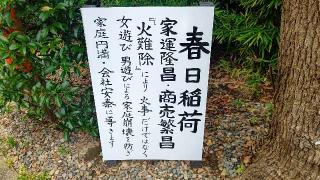 春日稲荷
家運隆昌・商売繁昌
『火難除』により 火事だけではなく
女遊び 男遊びによる 家庭崩壊を防ぎ
家庭円満・会社安泰に導きます